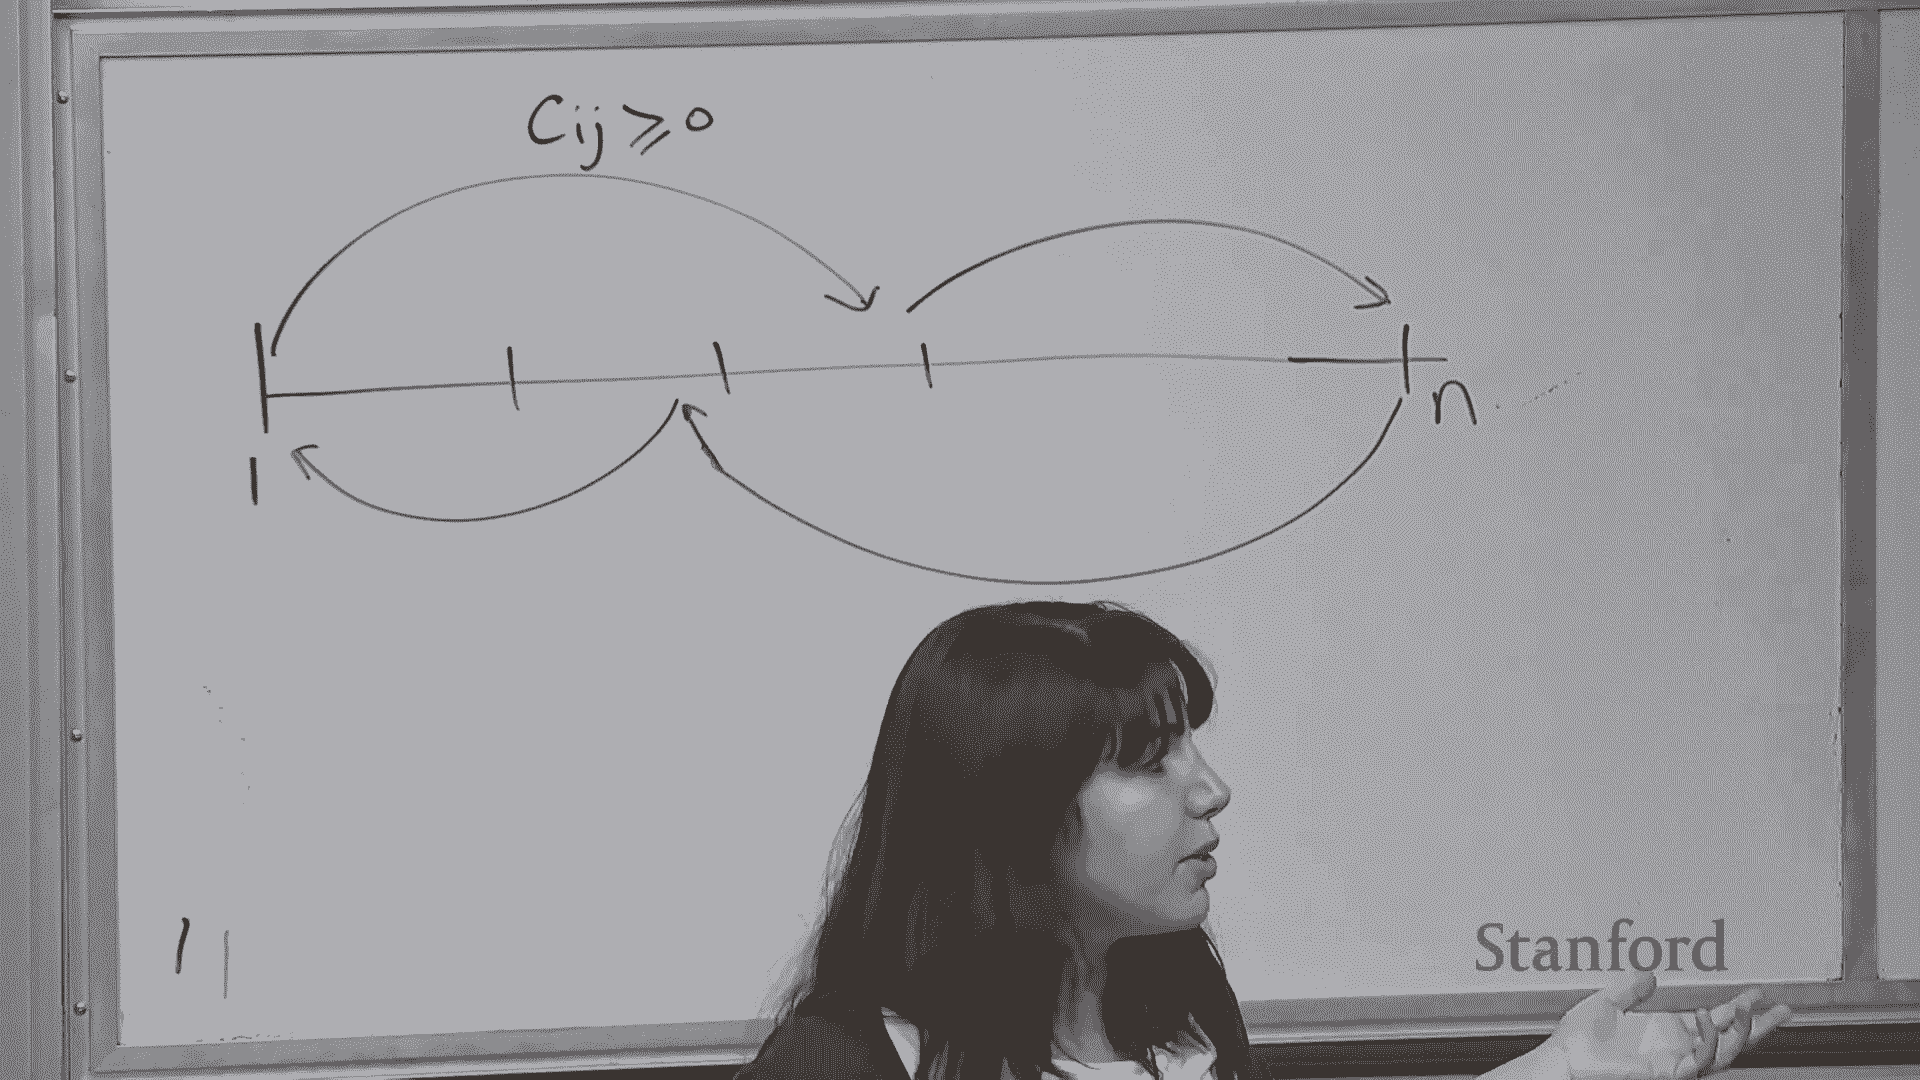 Cij ≥ 0
1
n
Stanford